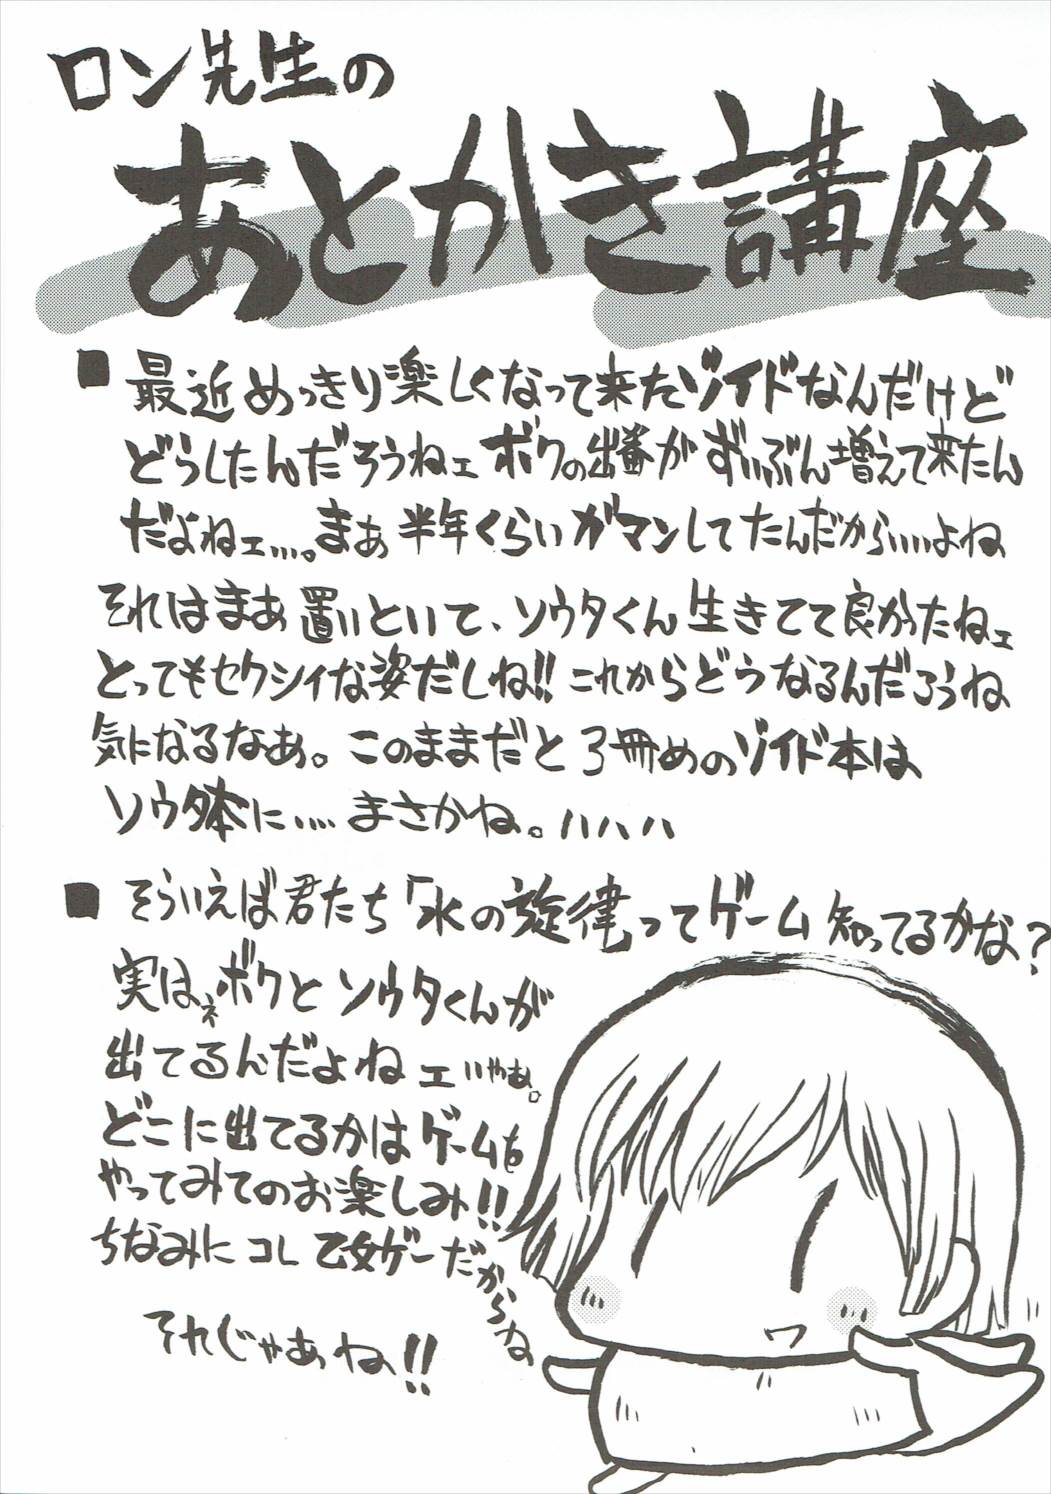 ロン先生の
あとがき講座
■最近めっきり楽しくなって来たゾイドなんだけど
どうしたんだろうねェ ボクの出番がずいぶん増えて来たん
だよねェ…。まぁ半年くらいガマンしてたんだから……よね
それはまあ置いといて、ソウタくん生きてて良かたねェ
とってもセクシィな姿だしね!! これからどうなるんだろうね
気になるなあ。このままだと3冊めのゾイド本は
ソウタ本に…‥まさかね。ハハハハ
■そういえば君たち「水の旋律ってゲーム知ってるかな?
実はネボクとソウタくんが
出てるんだよねェいやぁ。
どこに出てるかはゲームを
やってみてのお楽しみ!!
ちなみにコレ乙女ゲーだからね
それじゃあね!!